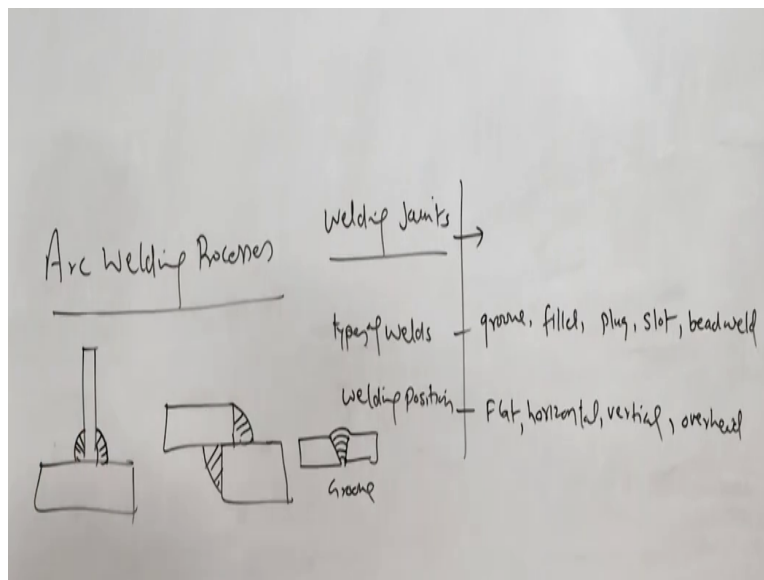 Welding Joints
Arc Welding Processes
types of welds - groove, fillet, plug, slot, bead weld
Welding position - Flat, horizontal, vertical, overhead
Groove